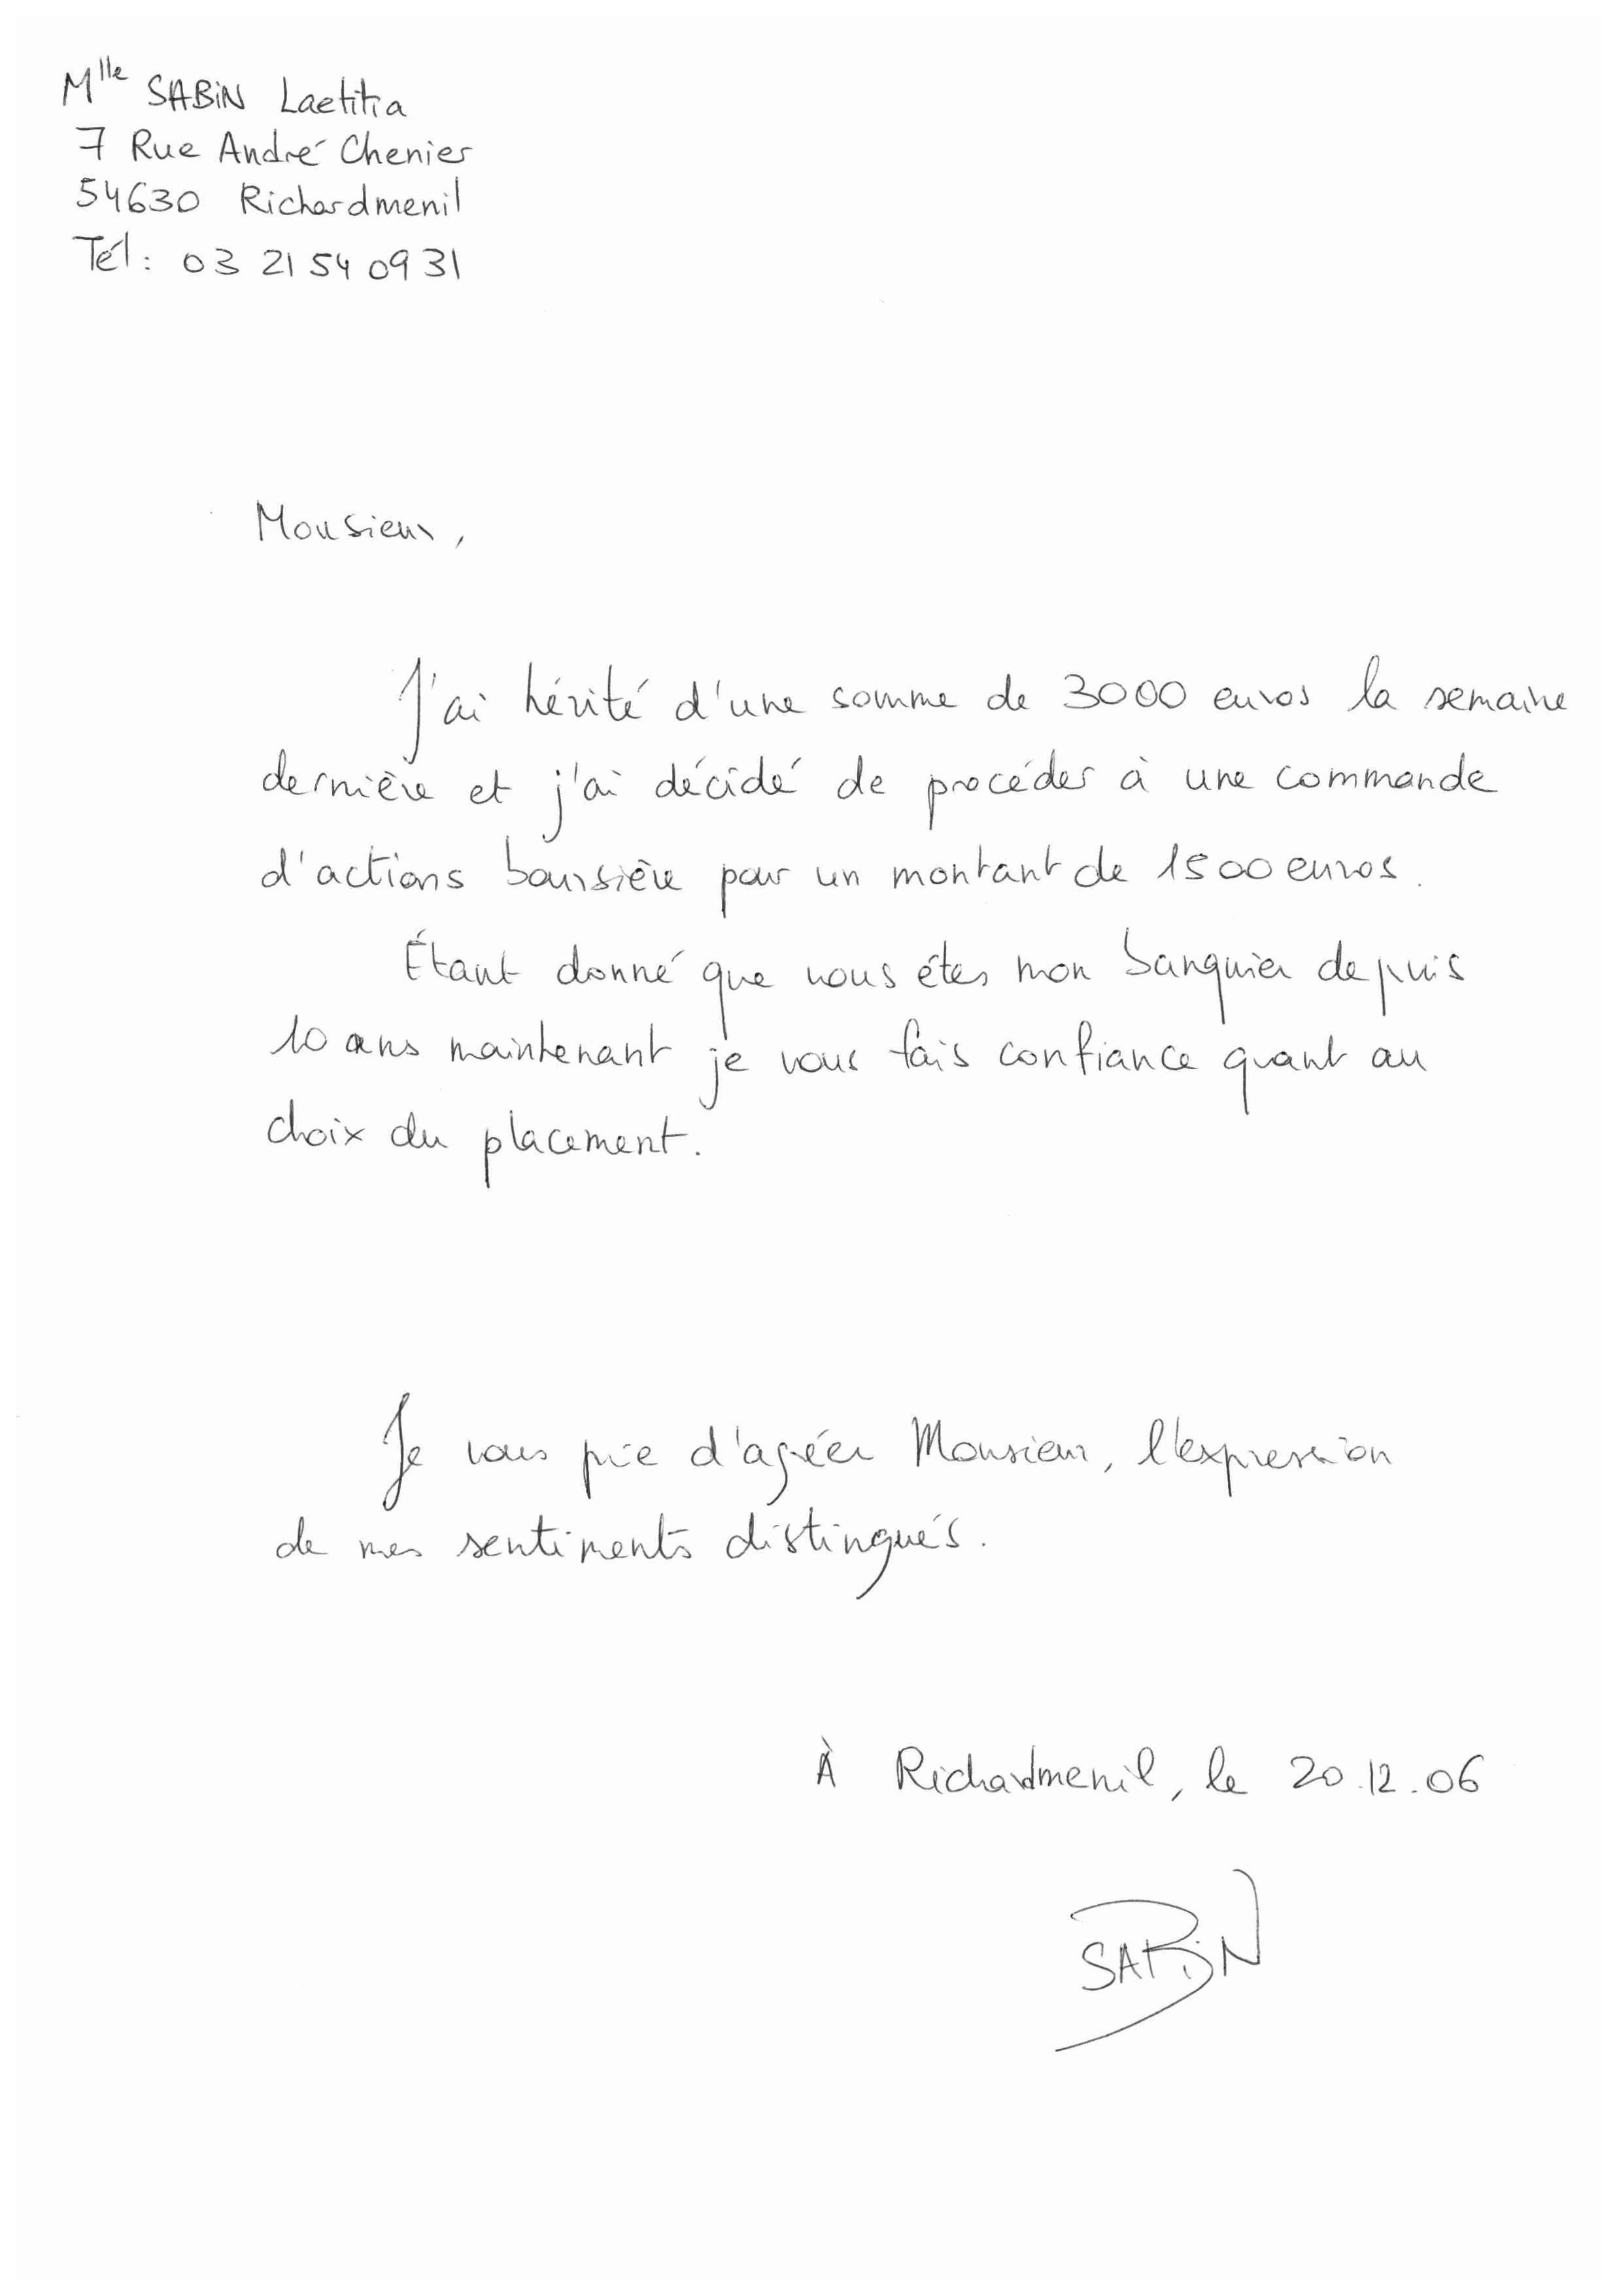 Mlle SABiN Laetitia
7 Rue André Chenier
54630 Richardmenil
Tél : 03 21 54 09 31
Monsieur,
J'ai hérité d'une somme de 3000 euros la semaine
dernière et j'ai décidé de procéder à une commande
d'actions boursière pour un montant de 1500 euros.
Étant donné que vous êtes mon banquier depuis
10 ans maintenant je vous fais confiance quant au
choix du placement.
Je vous prie d'agréer Monsieur, l'expression
de mes sentiments distingués.
À Richardmenil, le 20.12.06
SABiN